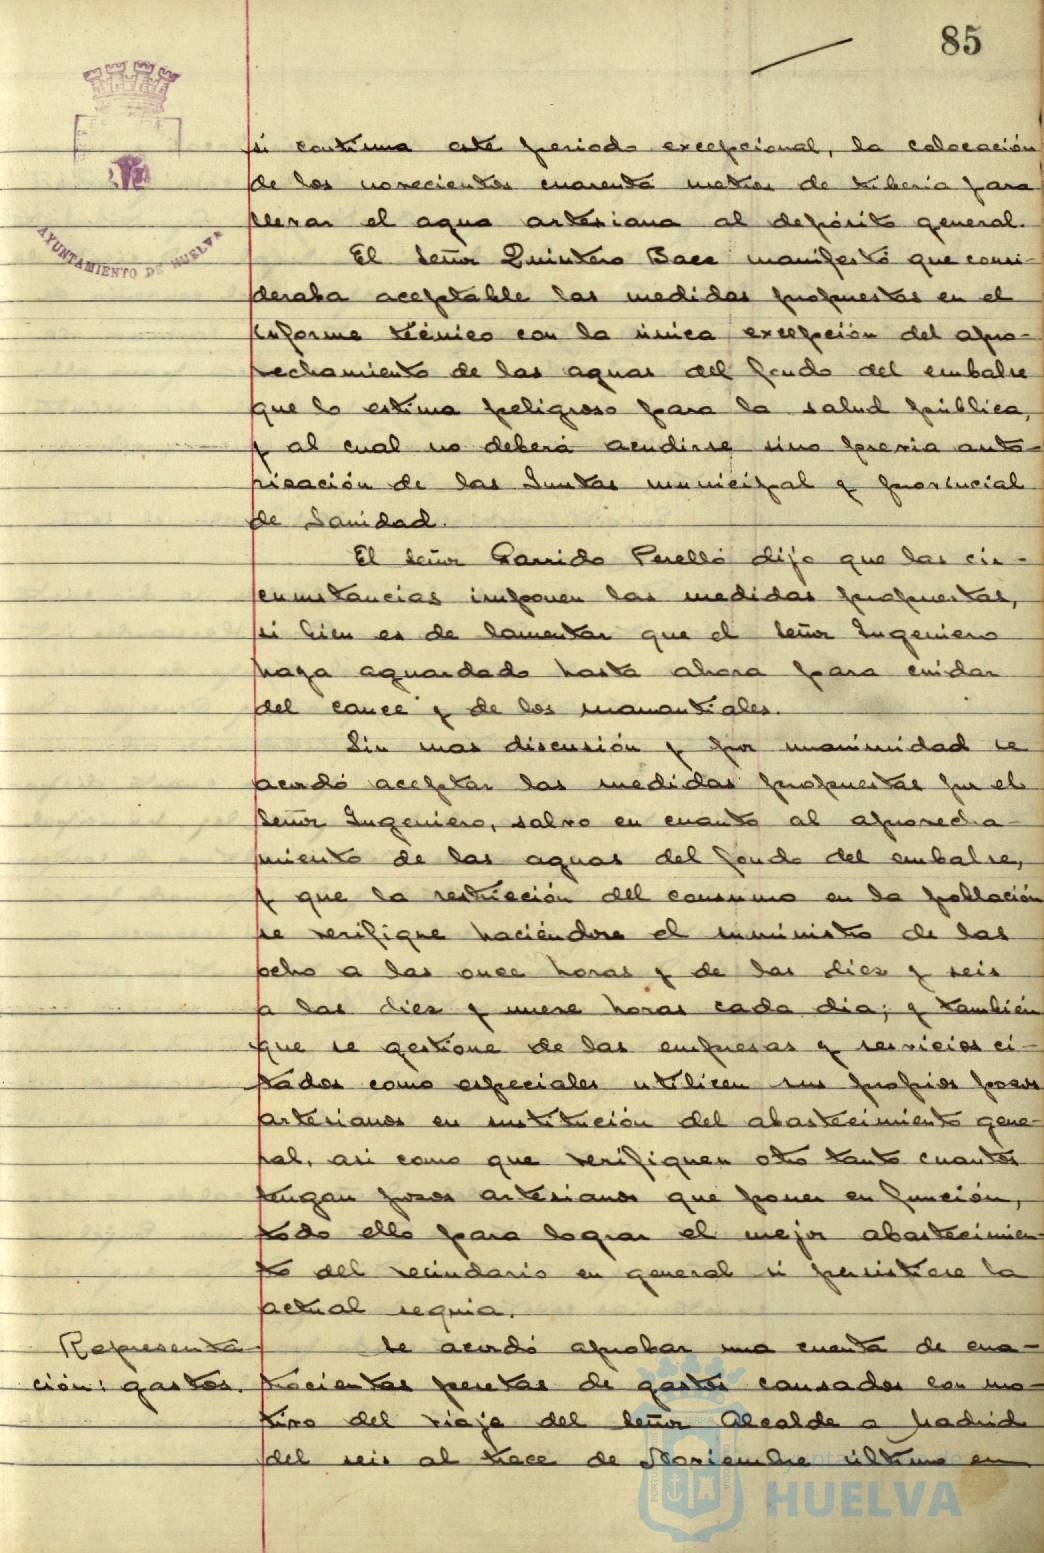 85
AYUNTAMIENTO DE HUELVA
si continua este periodo excepcional, la colocación
de los novecientos cuarenta metros de tuberia para
llevar el agua artesiana al depósito general.
El Señor Quintero Baez manifestó que consi-
deraba aceptable las medidas propuestas en el
informe técnico con la única excepción del apro-
vechamiento de las aguas del fondo del embalse
que lo estima peligroso para la salud pública,
y al cual no deberá acudirse sino previa auto-
rización de las Juntas municipal y provincial
de Sanidad.
El señor Garrido Perelló dijo que las cir-
cunstancias imponen las medidas propuestas,
si bien es de lamentar que el Señor Ingeniero
haya aguardado hasta ahora para cuidar
del cauce y de los manantiales.
Sin mas discusión y por unanimidad se
acordó aceptar las medidas propuestas por el
Señor Ingeniero, salvo en cuanto al aprovecha-
miento de las aguas del fondo del embalse,
y que la restricción del consumo en la población
se verifique haciéndose el suministro de las
ocho a las once horas y de las diez y seis
a las diez y nueve horas cada dia; y también
que se gestione de las empresas y servicios ci-
tados como especiales utilicen sus propios pozos
artesianos en sustitución del abastecimiento gene-
ral, asi como que verifiquen otro tanto cuantos
tengan pozos artesianos que poner en función,
todo ello para lograr el mejor abastecimien-
to del vecindario en general si persistiese la
actual sequia.
Representa-
ción: gastos.
Se acordó aprobar una cuenta de cua-
trocientas pesetas de gastos causados con mo-
tivo del viaje del Señor Alcalde a Madrid
del seis al trece de Noviembre último en
Ayuntamiento de
HUELVA